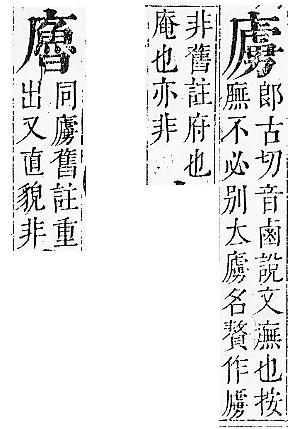 㢚
郎古切音鹵說文廡也按
廡不必別太㢚名贅作㢚
非舊註府也
庵也亦非
同㢚舊註重
出又直貌非